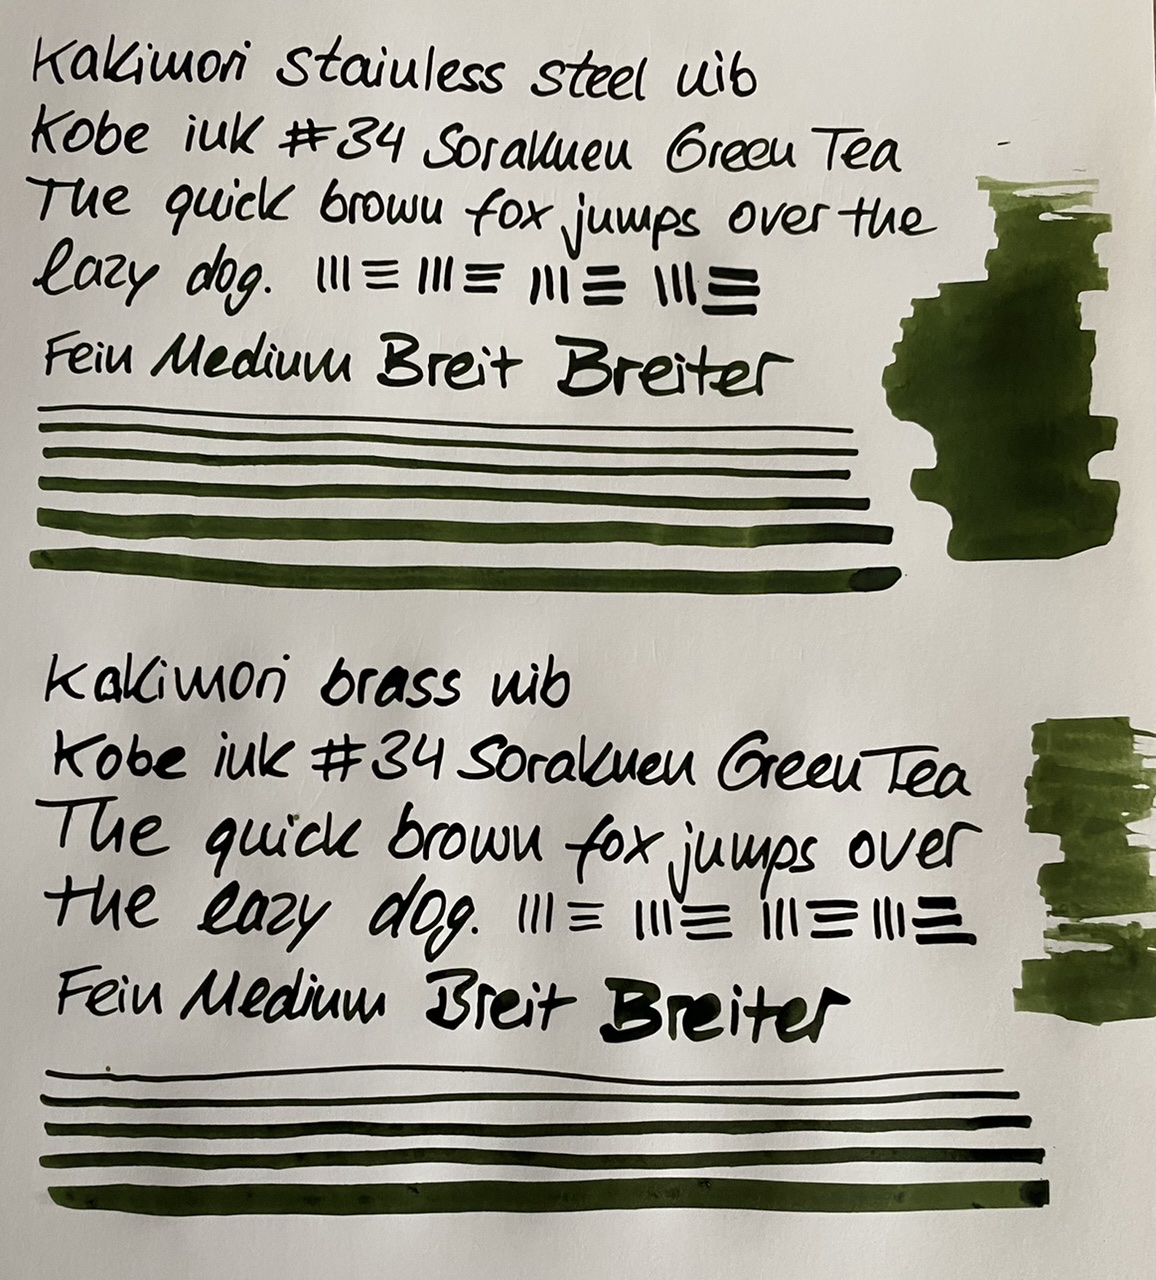 Kakimori stainless steel nib
Kobe ink #34 Sorakuen Green Tea
The quick brown fox jumps over the
lazy dog.
Fein Medium Breit Breiter
Kakimori brass nib
Kobe ink #34 Sorakuen Green Tea
The quick brown fox jumps over
the lazy dog.
Fein Medium Breit Breiter